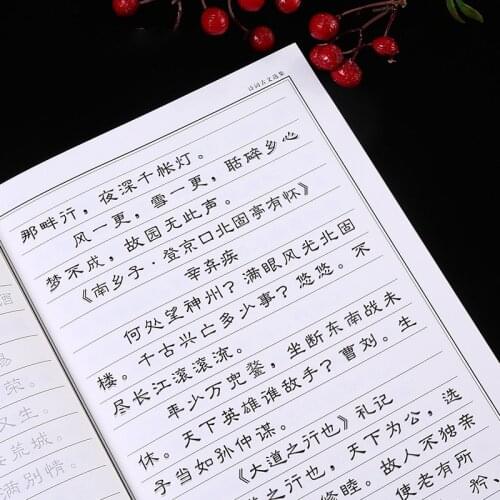 诗词古文选集
那畔行，夜深千帐灯。
风一更，雪一更，聒碎乡心
梦不成，故园无此声。
《南乡子·登京口北固亭有怀》
辛弃疾
何处望神州？满眼风光北固
楼。千古兴亡多少事？悠悠。不
尽长江滚滚流。
年少万兜鍪，坐断东南战未
休。天下英雄谁敌手？曹刘。生
子当如孙仲谋。
《大道之行也》礼记
之行也，天下为公，选
修睦。故人不独亲
使老有所
矜
易
荣。
又生。
荒城。
满别情。